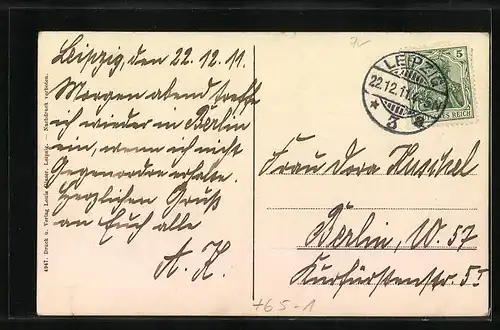 Leipzig, den 22.12.11.
Morgen abend treffe
ich wieder in Berlin
ein, wenn ich nicht
Gegenordre erhalte.
Herzlichen Gruß
an Euch alle
A. K.
LEIPZIG
22.12.11
5
REICH
Frau Dora Kuschel
Berlin, W. 57
Kurfürstenstr. 5
4947. Druck u. Verlag Louis Glaser, Leipzig. — Nachdruck verboten.
+65-1